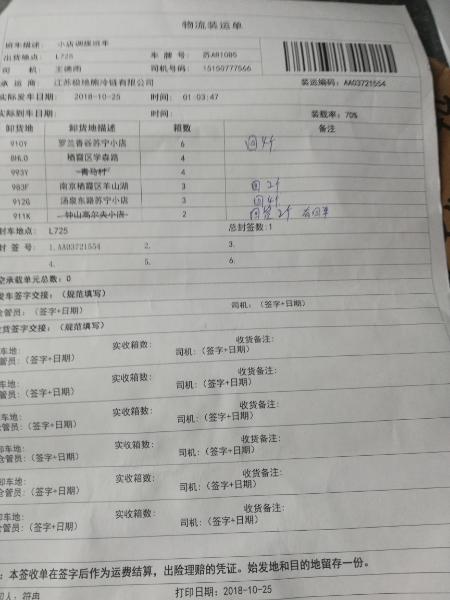 物流装运单
班车描述: 小店调拨班车
出货地点: L725 车 牌 号: 苏A81085
司 机: 王德雨 司机号码: 15150777566
承 运 商: 江苏极地熊冷链有限公司 装运编码: AA03721554
实际发车日期: 2018-10-25 时间: 01:03:47
实际到车日期: 时间: 装载率: 70%
卸货地 卸货地描述 箱数 备注
910Y 罗兰香谷苏宁小店 6 回4个
8HL0 栖霞区学森路 4
993Y 青马村 4
983F 南京栖霞区羊山湖 3 回2个
912G 汤泉东路苏宁小店 3 回4个
911K 钟山高尔夫小店 2
封车地点: L725 总封签数:1
封 签 号: 1.AA03721554 2. 3.
4. 5. 6.
空承载单元总数: 0
发车签字交接: (规范填写)
仓管员: (签字+日期) 司机: (签字+日期)
收货签字交接: (规范填写)
卸车地: 实收箱数: 收货备注:
仓管员: (签字+日期) 司机: (签字+日期)
卸车地: 实收箱数: 收货备注:
仓管员: (签字+日期) 司机: (签字+日期)
卸车地: 实收箱数: 收货备注:
仓管员: (签字+日期) 司机: (签字+日期)
卸车地: 实收箱数: 收货备注:
仓管员: (签字+日期) 司机: (签字+日期)
卸车地: 实收箱数: 收货备注:
仓管员: (签字+日期) 司机: (签字+日期)
卸车地: 实收箱数: 收货备注:
仓管员: (签字+日期) 司机: (签字+日期)
: 本签收单在签字后作为运费结算, 出险理赔的凭证。始发地和目的地留存一份。
人: 符冉 打印日期: 2018-10-25